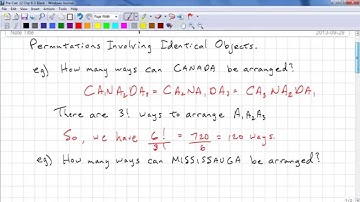 Note Title
2013-09-29
Permutations Involving Identical Objects.
eg) How many ways can CANADA be arranged?
CA₁NA₂DA₃ = CA₂NA₁DA₃ = CA₃NA₂DA₁
There are 3! ways to arrange A₁A₂A₃
So, we have 6!/3! = 720/6 = 120 ways.
eg) How many ways can MISSISSAUGA be arranged?